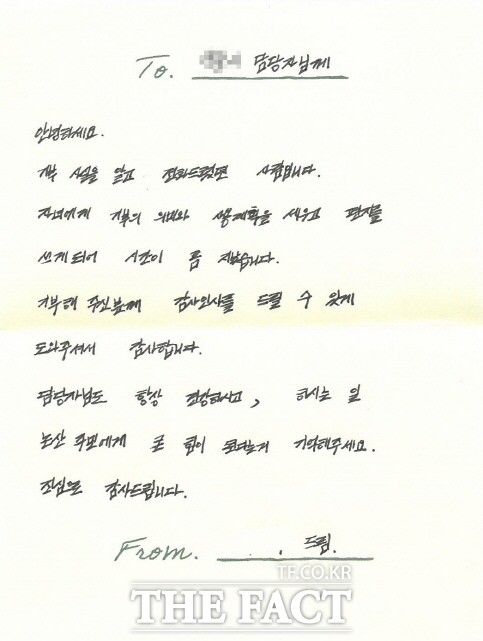 To. 담당자님께
안녕하세요.
기부 사실을 알고 전화드렸던 사람입니다.
자녀에게 기부의 의미와 사용계획을 세우고 편지를
쓰게되어 시간이 좀 지났습니다.
기부해 주신분께 감사인사를 드릴 수 있게
도와주셔서 감사합니다.
담당자님도 항상 건강하시고, 하시는 일
논산 주민에게 큰 힘이 된다는거 기억해주세요.
진심으로 감사드립니다.
From. 드림.
TF.CO.KR
THE FACT